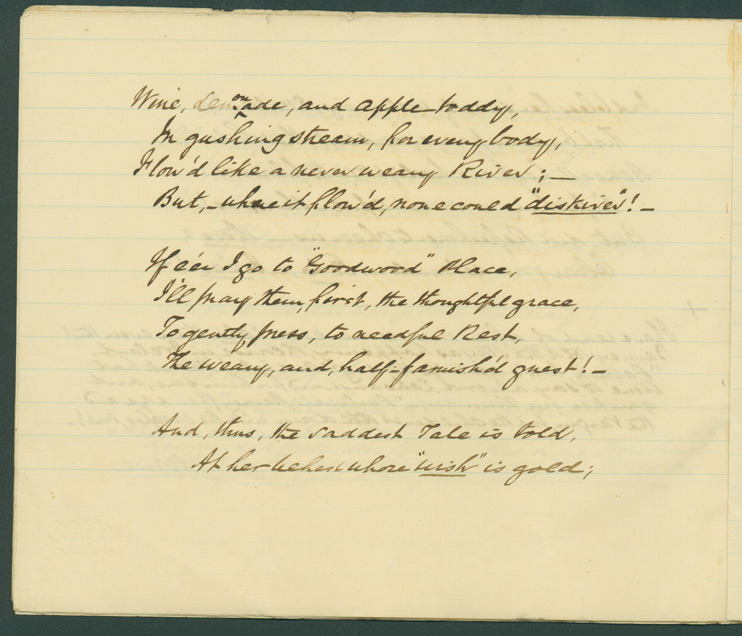 Wine, lemonade, and apple-toddy,
In gushing stream, for every body,
Flow'd like a never weary River; —
But, – where it flow'd, none could "diskiver"! –
If e'er I go to "Goodwood" Place,
I'll pray them, first, the thoughtful grace,
To gently press, to needful Rest,
The weary, and, half-famish'd guest! –
And, thus, the saddest Tale is told,
At her behest whose "wish" is gold;